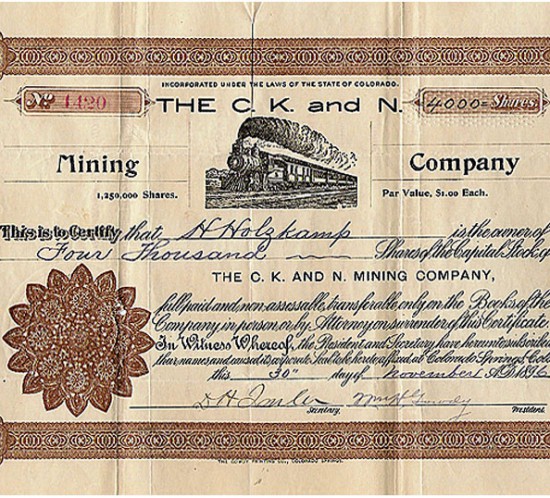 INCORPORATED UNDER THE LAWS OF THE STATE OF COLORADO.
No 1420 THE C. K. and N. 4000= Shares.
Mining Company
1,250,000 Shares. Par Value, $1.00 Each.
This is to Certify that H Holzkamp is the owner of
Four Thousand Shares of the Capital Stock of
THE C. K. AND N. MINING COMPANY,
full paid and non-assessable, transferable only on the Books of the
Company in person or by Attorney on surrender of this Certificate
In Witness Whereof, the President and Secretary have hereunto subscribed
their names and caused its corporate Seal to be hereto affixed at Colorado Springs, Colo
this 30" day of november A.D. 1896
Secretary. President
THE GOWDY PRINTING CO., COLORADO SPRINGS.